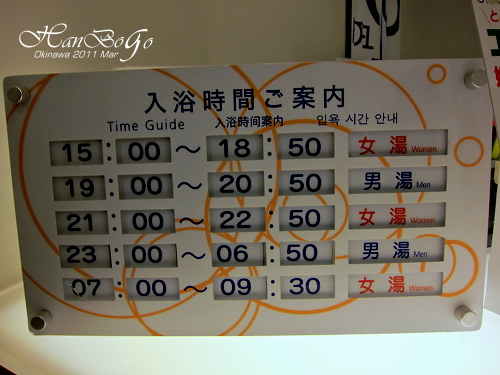 HanBoGo
Okinawa 2011 Mar
入浴時間ご案内
Time Guide 入浴時间案内 입욕 시간 안내
15:00～18:50 女湯 Women
19:00～20:50 男湯 Men
21:00～22:50 女湯 Women
23:00～06:50 男湯 Men
07:00～09:30 女湯 Women